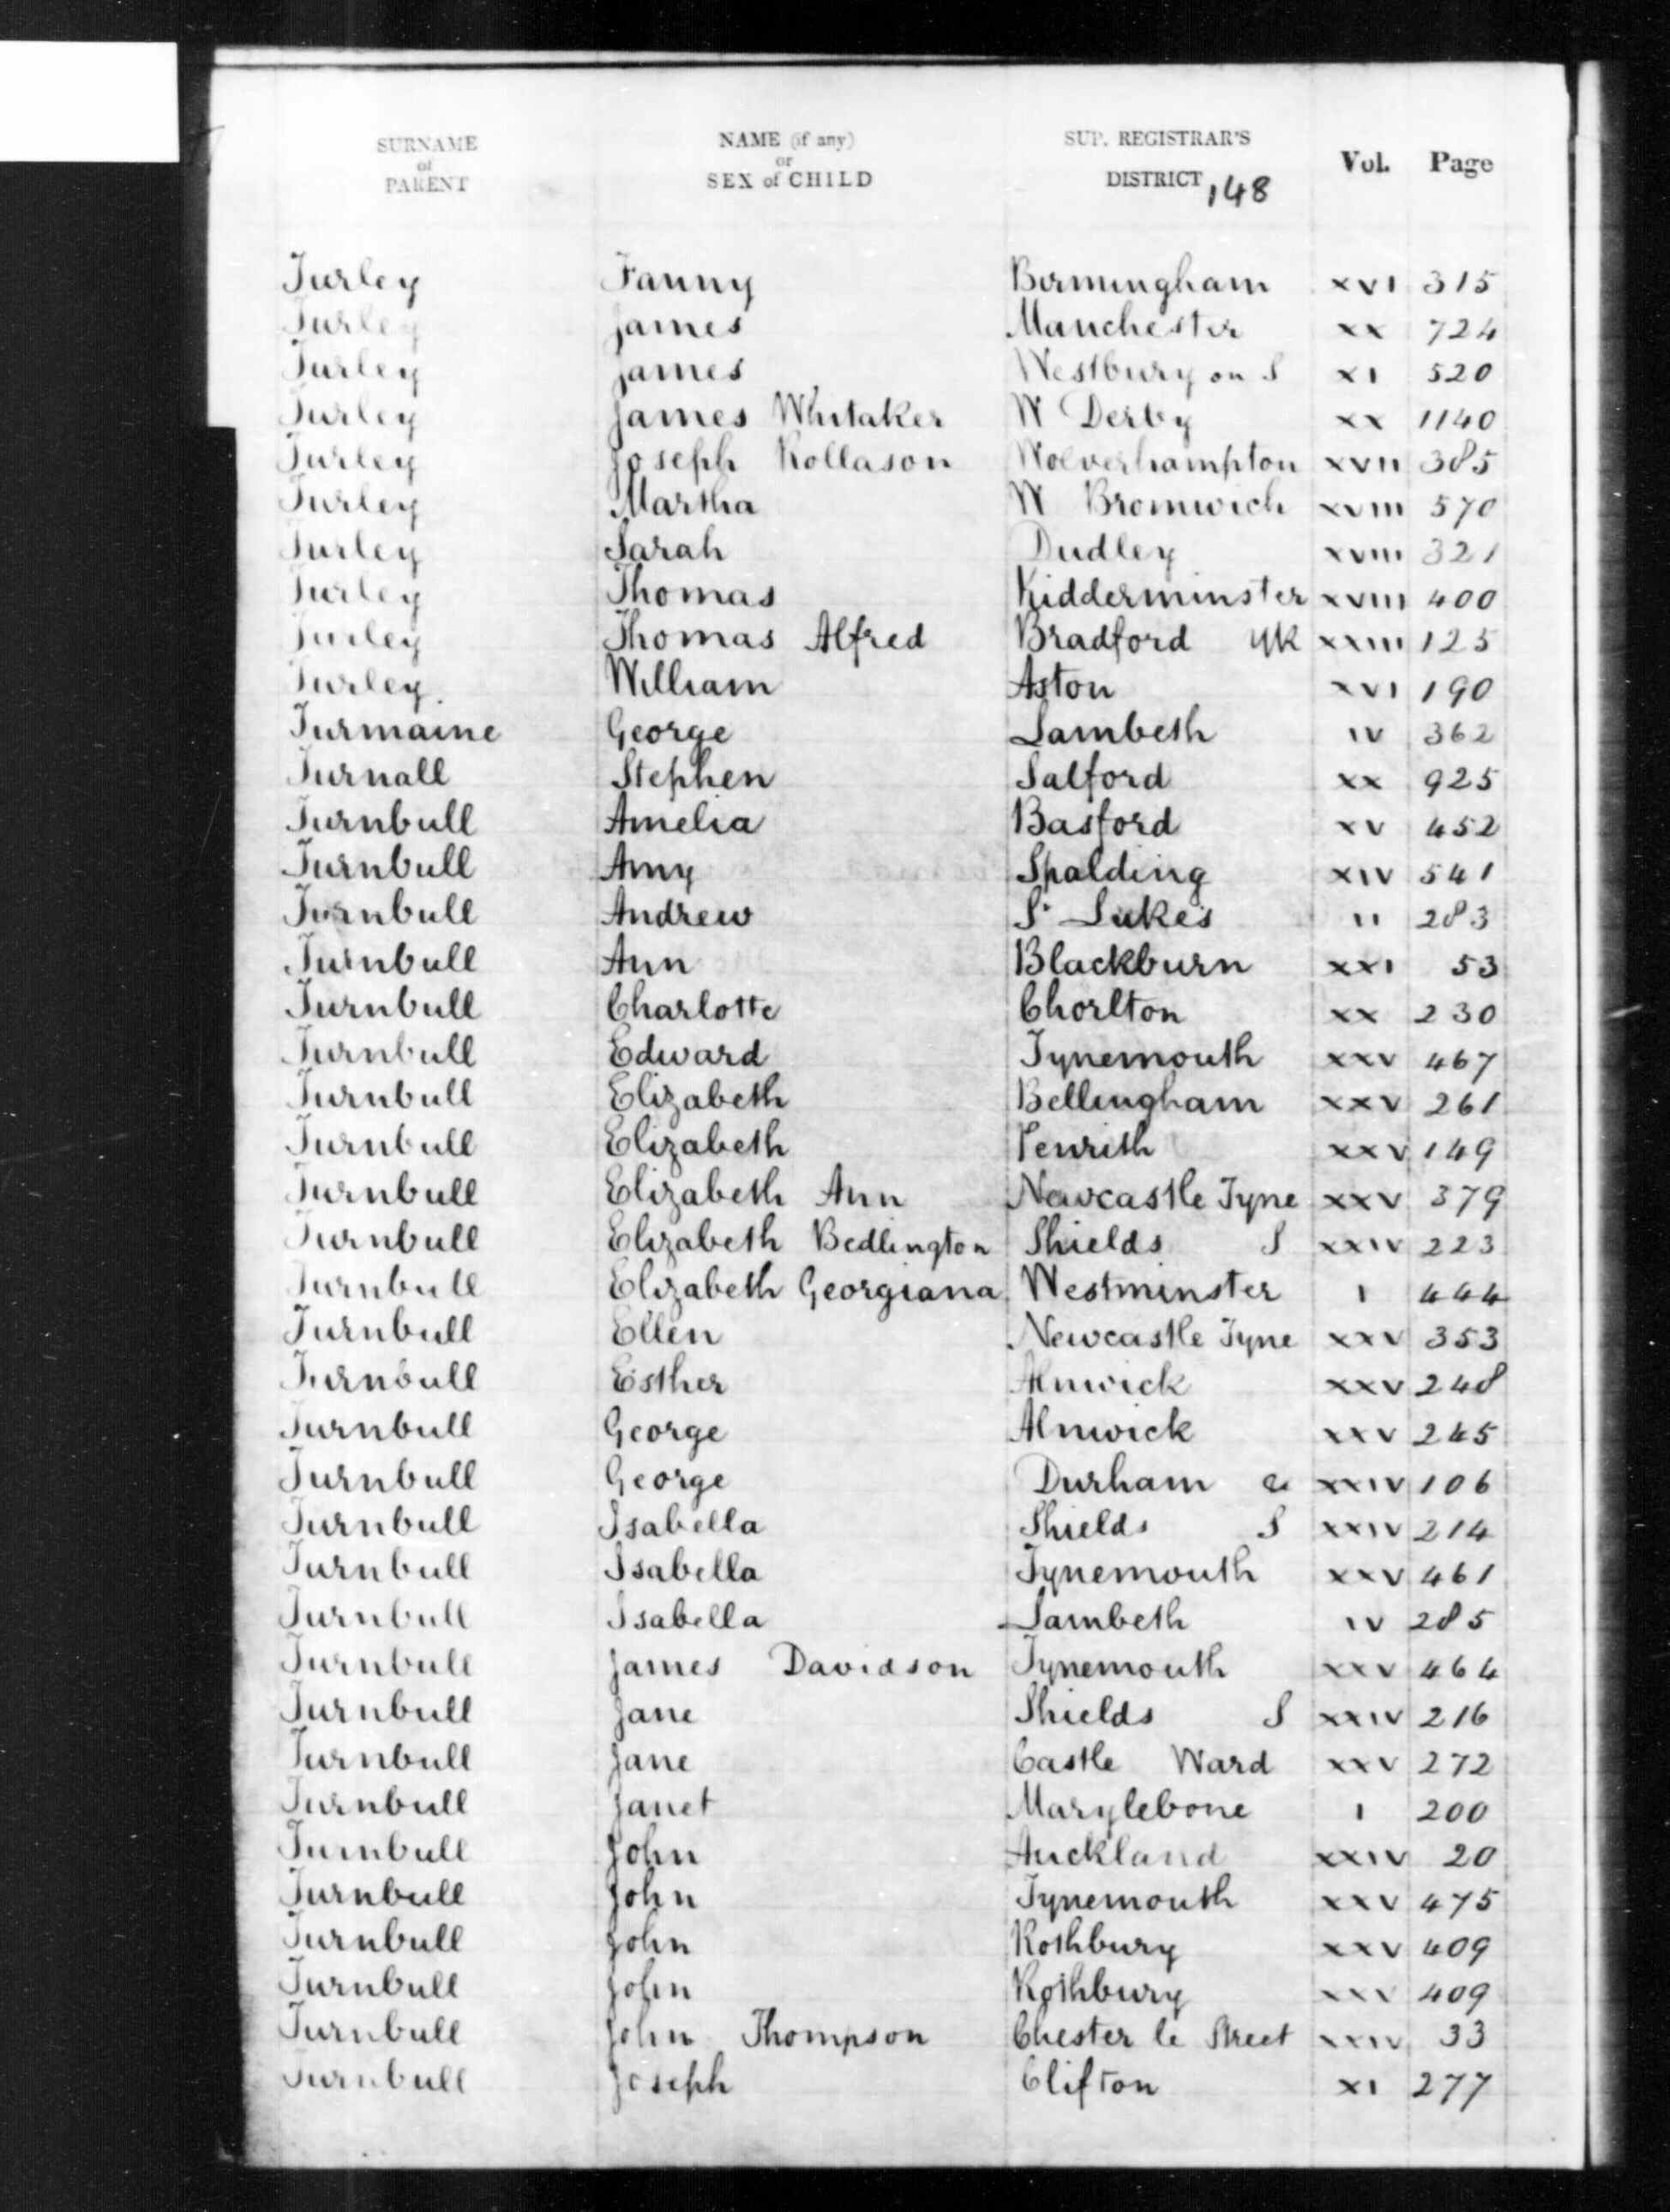 SURNAME of PARENT NAME (if any) or SEX of CHILD SUP. REGISTRAR'S DISTRICT 148 Vol. Page
Turley Fanny Birmingham XVI 315
Turley James Manchester XX 724
Turley James Westbury on S XI 520
Turley James Whitaker W Derby XX 1140
Turley Joseph Rollason Wolverhampton XVII 385
Turley Martha W Bromwich XVIII 570
Turley Sarah Dudley XVIII 321
Turley Thomas Kidderminster XVIII 400
Turley Thomas Alfred Bradford Yk XXIII 125
Turley William Aston XVI 190
Turmaine George Lambeth IV 362
Turnall Stephen Salford XX 925
Turnbull Amelia Basford XV 452
Turnbull Amy Spalding XIV 541
Turnbull Andrew St Luke's II 283
Turnbull Ann Blackburn XXI 53
Turnbull Charlotte Chorlton XX 230
Turnbull Edward Tynemouth XXV 467
Turnbull Elizabeth Bellingham XXV 261
Turnbull Elizabeth Penrith XXV 149
Turnbull Elizabeth Ann Newcastle Tyne XXV 379
Turnbull Elizabeth Bedlington Shields S XXIV 223
Turnbull Elizabeth Georgiana Westminster I 444
Turnbull Ellen Newcastle Tyne XXV 353
Turnbull Esther Alnwick XXV 248
Turnbull George Alnwick XXV 245
Turnbull George Durham & XXIV 106
Turnbull Isabella Shields S XXIV 214
Turnbull Isabella Tynemouth XXV 461
Turnbull Isabella Lambeth IV 285
Turnbull James Davidson Tynemouth XXV 464
Turnbull Jane Shields S XXIV 216
Turnbull Jane Castle Ward XXV 272
Turnbull Janet Marylebone I 200
Turnbull John Auckland XXIV 20
Turnbull John Tynemouth XXV 475
Turnbull John Rothbury XXV 409
Turnbull John Rothbury XXV 409
Turnbull John Thompson Chester le Street XXIV 33
Turnbull Joseph Clifton XI 277